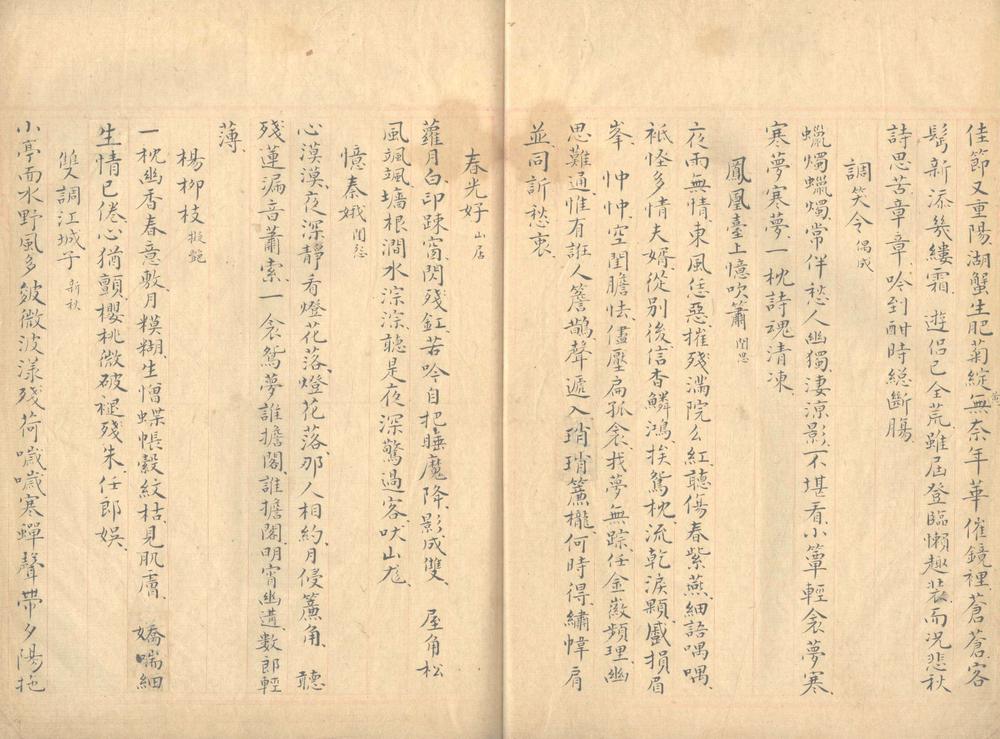 佳節又重陽湖蟹生肥菊綻黃無奈年華催鏡裡蒼蒼客
髩新添幾縷霜 遊侶已全荒雖屆登臨懶趣裝而況悲秋
詩思苦章章吟到酣時總斷腸
調笑令 偶成
蠟燭蠟燭常伴愁人幽獨淒涼影不堪看小簟輕衾夢寒
寒夢寒夢一枕詩魂清凍
鳳凰臺上憶吹簫 閨思
夜雨無情東風恁惡摧殘滿院么紅聽傷春紫燕細語喁喁
祇怪多情夫婿從別後信杳鱗鴻挨鴛枕流乾淚顆蹙損眉
峯 忡忡空閨膽怯儘壓扁孤衾找夢無踪任金徽頻理幽
思難通惟有誑人簷鵲聲遞入瑣瑣簾櫳何時得繡幃肩
並同訢愁衷
春光好 山居
蘿月白印疎窗閃殘釭苦吟自把睡魔降影成雙 屋角松
風颯颯墻根澗水淙淙聽是夜深驚過客吠山尨
憶秦娥 閨愁
心漠漠夜深靜有燈花落燈花落那人相約月侵簾角 聽
殘蓮漏音蕭索一衾鴛夢誰擔閣誰擔閣明宵幽遘數郎輕
薄
楊柳枝 擬艷
一枕幽香春意敷月糢糊生憎蝶帳縠紋枯見肌膚 嬌喘細
生情已倦心猶顫櫻桃微破褪殘朱任郎娛
雙調江城子 新秋
小亭面水野風多皴微波漾殘荷嘒嘒寒蟬聲帶夕陽拖